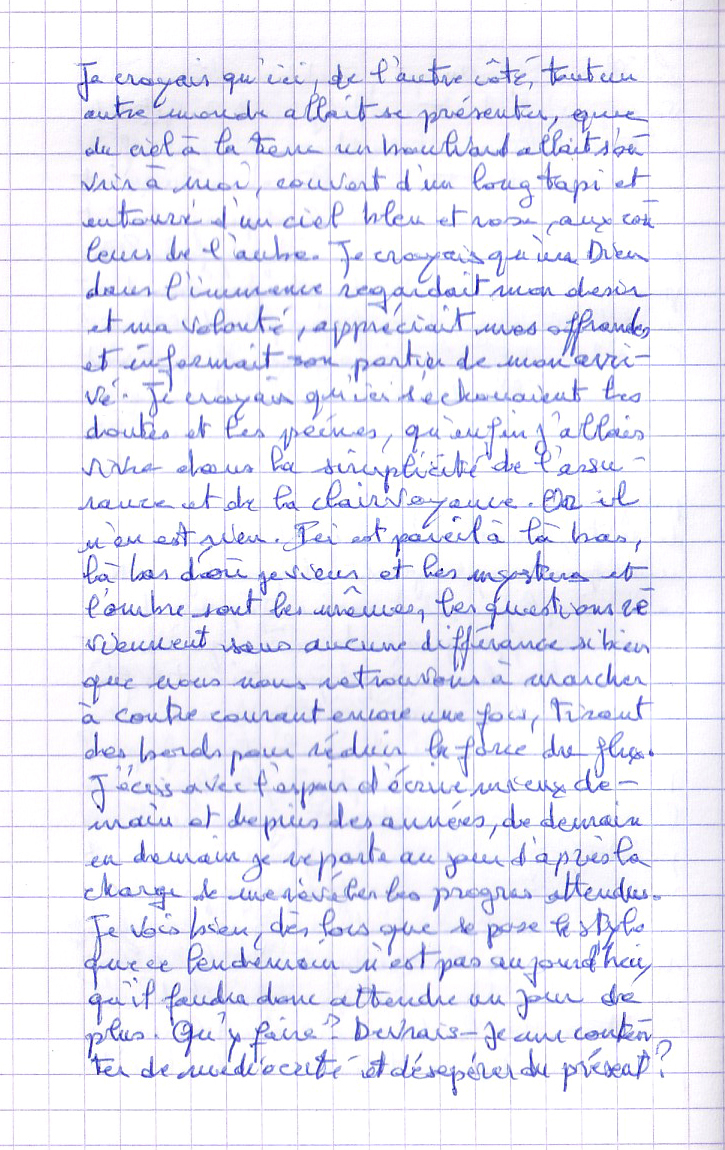 Je croyais qu'ici, de l'autre côté, tout un
autre monde allait se présenter, que
du ciel à la terre un boulevard allait s'ou
vrir à moi, couvert d'un long tapi et
entouré d'un ciel bleu et rose, aux cou
leurs de l'aube. Je croyais qu'un Dieu
dans l'immence regardait mon desir
et ma volonté, appréciait mes offrandes
et informait son portier de mon arri-
vé. Je croyais qu'ici s'échouaient les
doutes et les peines, qu'enfin j'allais
vivre dans la simplicité de l'assu-
rance et de la clairvoyance. Or il
n'en est rien. Ici est pareil à là bas,
là bas d'où je viens et les mystères et
l'ombre sont les mêmes, les questions re
viennent sans aucune différance si bien
que nous nous retrouvons à marcher
à contre courant encore une fois, tirant
des bords pour réduire la force du flux.
J'écris avec l'espoir d'écrire mieux de-
main et depuis des années, de demain
en demain je reporte au jour d'après la
charge de me révéler les progres attendus.
Je vois bien, dès lors que je pose le stylo
que ce lendemain n'est pas aujourd'hui,
qu'il faudra donc attendre un jour de
plus. Qu'y faire? Devrais-je me conten
ter de médiocrité et désepérer du présent?